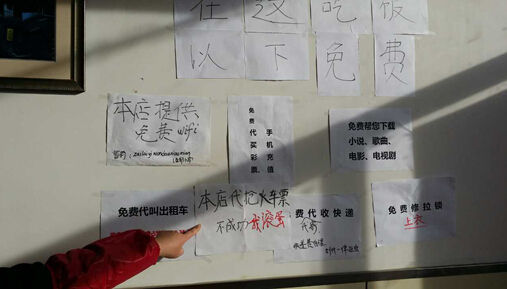 在这吃饭
以下免费
本店提供
免费wifi
免费
代买彩票
手机充值
免费帮您下载
小说、歌曲、
电影、电视剧
免费代叫出租车
本店代抢火车票
不成功我滚蛋
费代收快递
免费修拉锁
上衣